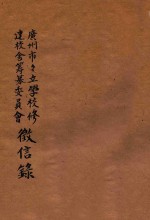 廣州市市立學校修
建校舍籌募委員會
徵信錄